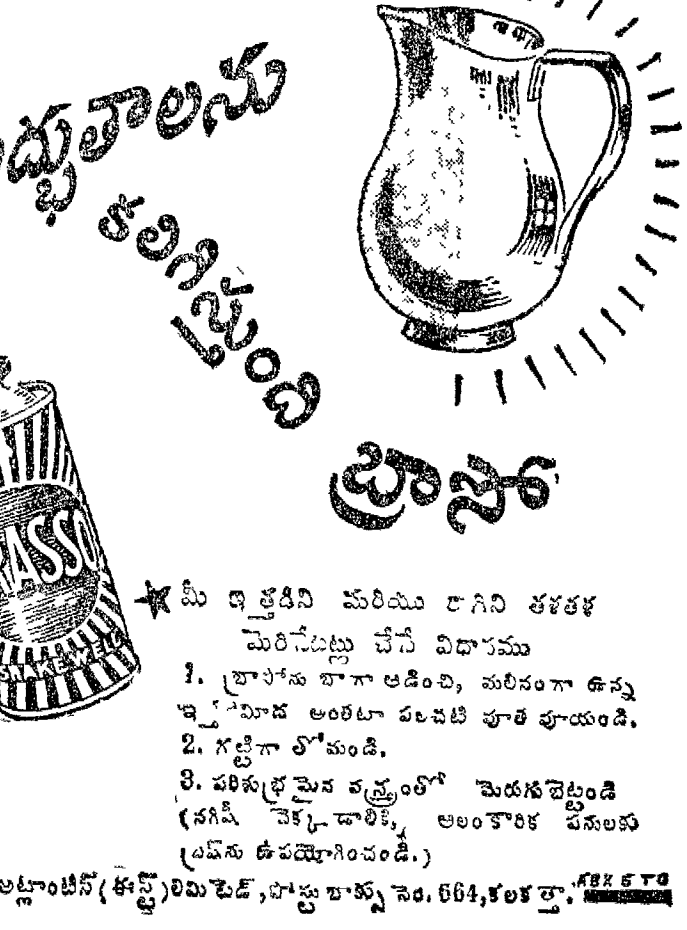 ద్భుతాలను
కలిగించే
బ్రాసో
RASSO
SHAKE WELL
మీ ఇత్తడిని మరియు రాగిని తళతళ
మెరిసేటట్లు చేసే విధానము
1. బ్రాసోను బాగా ఆడించి, మలినంగా ఉన్న
ఇత్తడిమీద అంతటా పలచటి పూత పూయండి.
2. గట్టిగా తోమండి.
3. పరిశుభ్రమైన వస్త్రంతో మెరుగుబెట్టండి
(నగిషీ చెక్కడానికి, అలంకారిక పనులకు
బ్రష్‌ను ఉపయోగించండి.)
అట్లాంటిస్ (ఈస్ట్) లిమిటెడ్, పోస్టు బాక్సు నెం. 664, కలకత్తా.